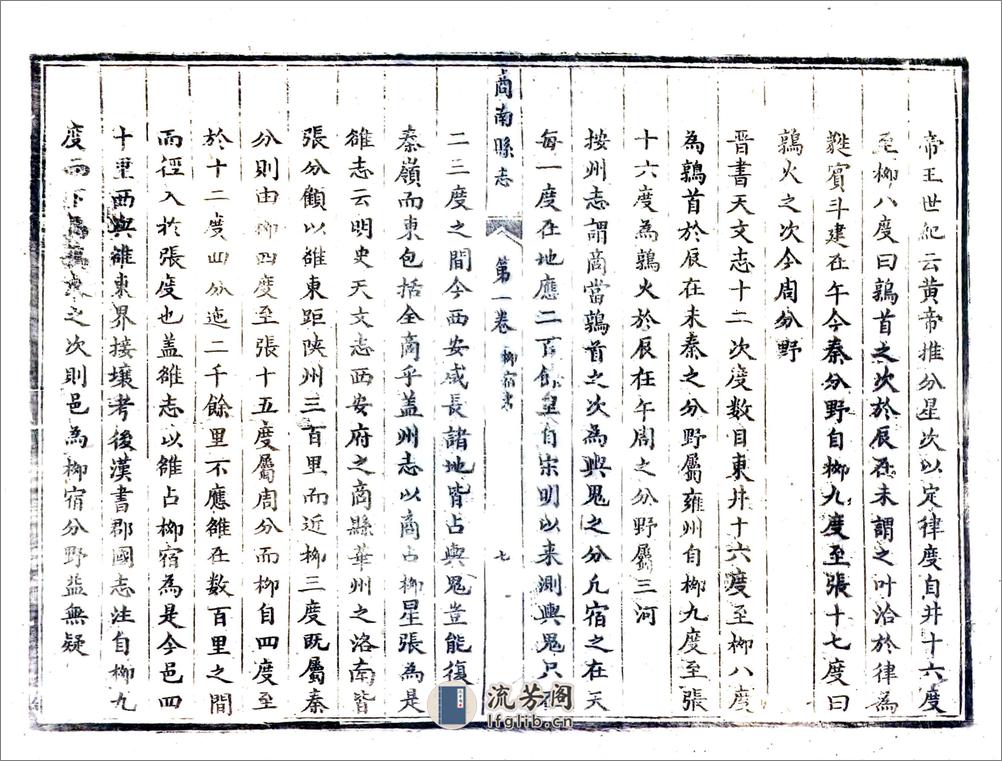 帝王世紀云黃帝推分星次以定律度自井十六度
至柳八度曰鶉首之次於辰在未謂之叶洽於律為
蕤賓斗建在午今秦分野自柳九度至張十七度曰
鶉火之次今周分野
晉書天文志十二次度数目東井十六度至柳八度
為鶉首於辰在未秦之分野屬雍州自柳九度至張
十六度為鶉火於辰在午周之分野屬三河
按州志謂商當鶉首之次為輿鬼之分凡宿之在天
每一度在地應二百餘里自宋明以来測輿鬼只
商南縣志
第一卷
柳宿
七
二三度之間今西安咸長諸地皆占輿鬼豈能復
秦嶺而東包括全商乎蓋州志以商占柳星張為是
雒志云明史天文志西安府之商縣華州之洛南皆
張分顧以雒東距陕州三百里而近柳三度既屬秦
分則由柳四度至張十五度屬周分而柳自四度至
於十二度四分迤二千餘里不應雒在数百里之間
而徑入於張度也蓋雒志以雒占柳宿為是今邑四
十里西與雒東界接壤考後漢書郡國志注自柳九
度而下之次則邑為柳宿分野益無疑
流芳阁
lfglib.cn